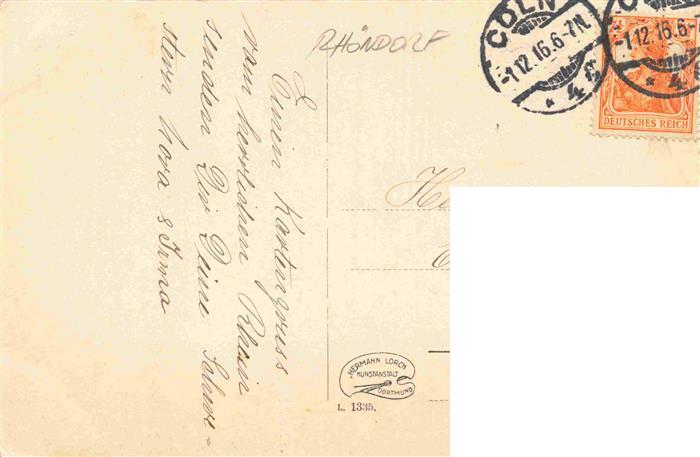 RHÖNDORF
CÖLN
-1.12.16.6-7N.
* 4
-1.12.16.6-
* 4
DEUTSCHES REICH
Einen Kartengruss
vom herrlichen Rhein
senden Dir Deine Schwe-
stern Nora & Irma
HERMANN LORCH
KUNSTANSTALT
DORTMUND
L. 1335.